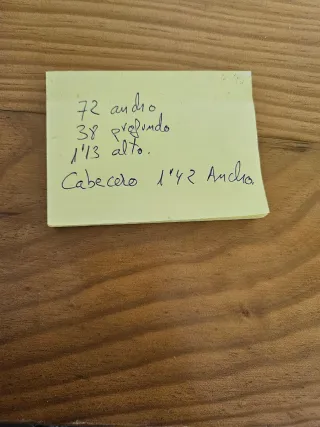 72 ancho
38 profundo
1'13 alto.
Cabecero 1'42 Ancho.